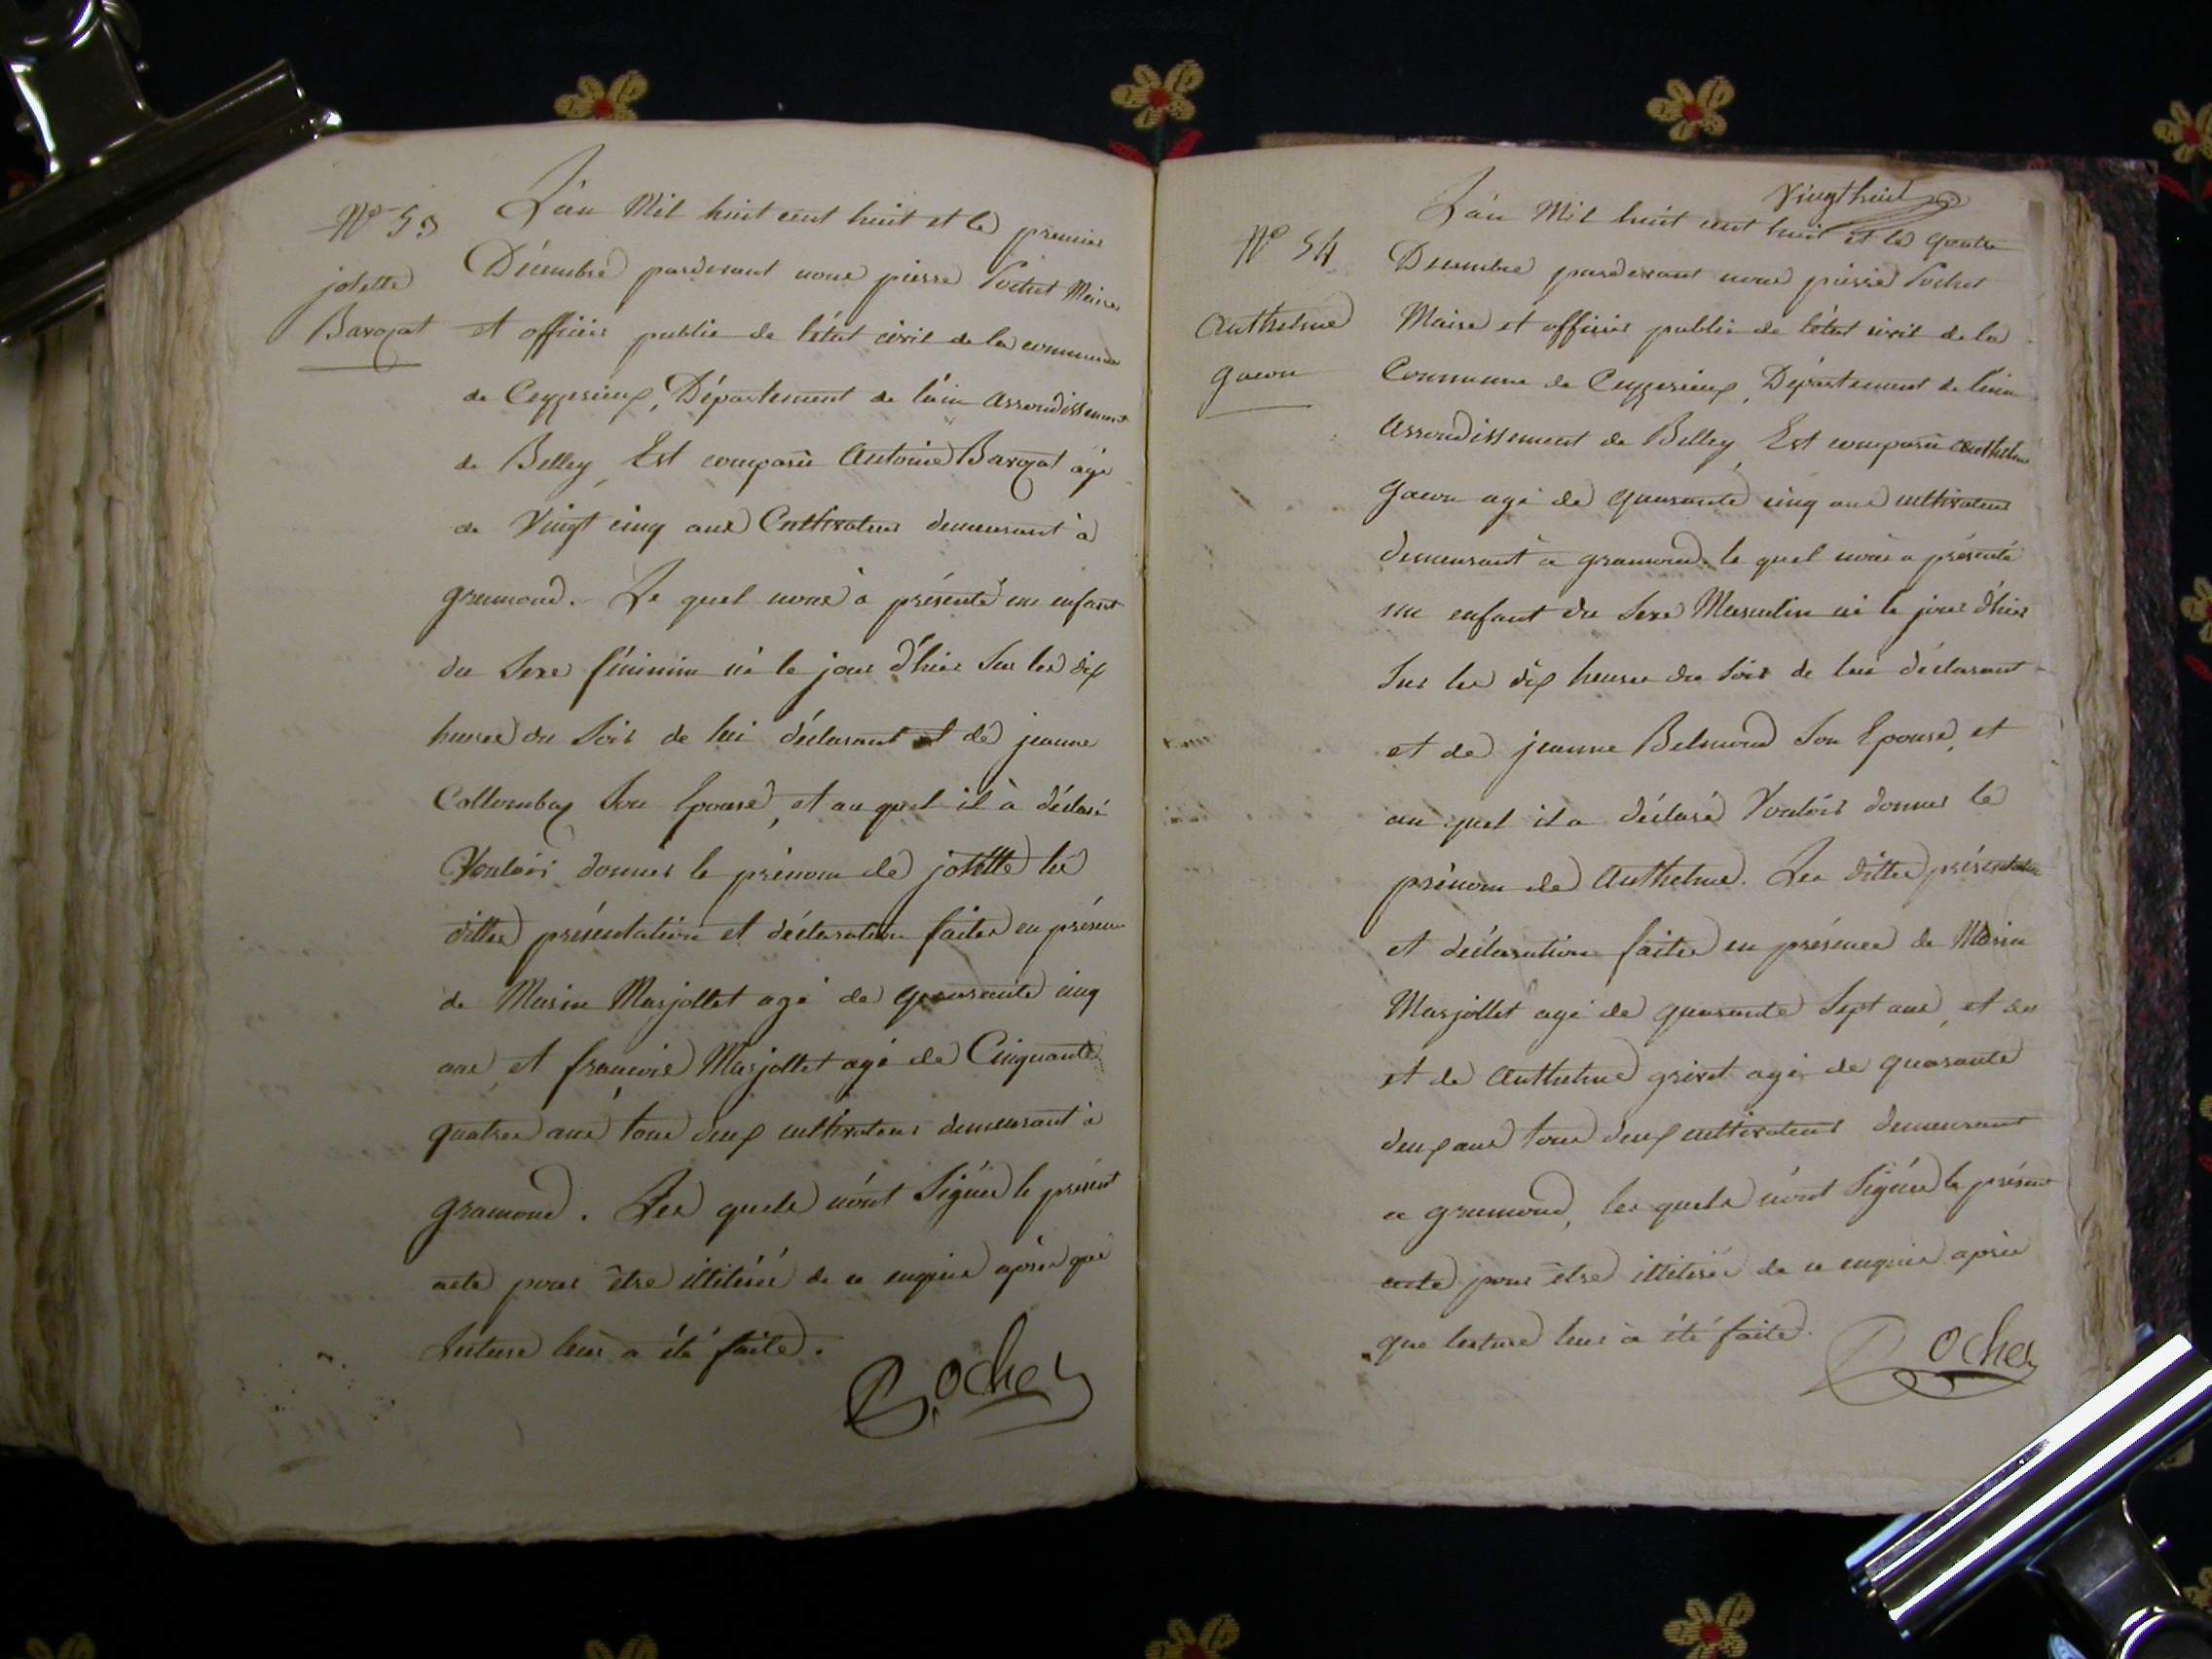 N° 53
josette
Baroçat
L'an Mil huit cent huit et le premier
Décembre pardevant nous pierre Pochet Maire
et officier public de l'état civil de la commune
de Ceyzerieux, Département de l'ain arrondissement
de Belley, Est comparû Antoine Baroçat agé
de Vingt cinq ans Cultivateur demeurant à
gramond. Le quel nous à présenté un enfant
du Sexe féminin né le jour d'hier Sur les dix
heures du Soir de lui déclarant et de jeanne
Collombay Son Epouse, et au quel il à déclaré
Vouloir donner le prénom de josette les
dittes présentation et déclaration faites en présence
de Marin Marjollet agé de quarante cinq
ans, et francois Marjollet agé de Cinquante
quatres ans tous deux cultivateurs demeurant à
gramond. Les quels n'ont Signés le présent
acte pour être illitérés de ce enquis après que
lecture leur a été faite.
Pochet
Vingt huit
N° 54
Anthelme
gacon
L'an Mil huit cent huit et le quatre
Decembre pardevant nous pierre Pochet
Maire et officier public de l'état civil de la
Commune de Ceyzerieux, Département de l'ain
arrondissement de Belley, Est comparu Anthelme
gacon agé de quarante cinq ans cultivateur
demeurant à gramond. le quel nous a présenté
un enfant du Sexe Masculin né le jour d'hier
Sur les dix heures du Soir de lui déclarant
et de jeanne Belmond Son Epouse, et
au quel il a déclaré Vouloir donner le
prénom de Anthelme. Les dittes présentation
et déclaration faites en présence de Marin
Marjollet agé de quarante Sept ans, et de
et de Anthelme grivet agé de quarante
deux ans tous deux cultivateurs demeurant
a gramond, les quels n'ont Signés le présent
acte pour être illitérés de ce enquis après
que lecture leur à été faite.
Pochet